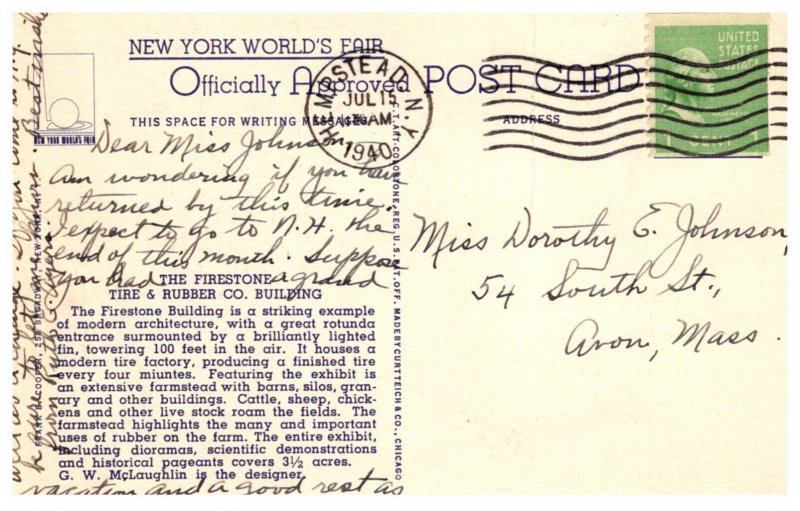 NEW YORK WORLD'S FAIR
Officially Approved POST CARD
THIS SPACE FOR WRITING MESSAGES
ADDRESS
HEMPSTEAD, N.Y.
JUL 15
AM
1940
UNITED
STATES
POSTAGE
WASHINGTON
1 CENT 1
NEW YORK WORLD'S FAIR
Dear Miss Johnson
Am wondering if you have
returned by this time.
I expect to go to N.H. the
end of this month. Suppose
you had a grand
vacation and a good rest as
well as a change.
Best wishes
from Ruth
Miss Dorothy E. Johnson,
54 South St.,
Avon, Mass.
THE FIRESTONE
TIRE & RUBBER CO. BUILDING
The Firestone Building is a striking example
of modern architecture, with a great rotunda
entrance surmounted by a brilliantly lighted
fin, towering 100 feet in the air. It houses a
modern tire factory, producing a finished tire
every four miuntes. Featuring the exhibit is
an extensive farmstead with barns, silos, gran-
ary and other buildings. Cattle, sheep, chick-
ens and other live stock roam the fields. The
farmstead highlights the many and important
uses of rubber on the farm. The entire exhibit,
including dioramas, scientific demonstrations
and historical pageants covers 3½ acres.
G. W. McLaughlin is the designer.
C. T. ART-COLORTONE, REG. U. S. PAT. OFF. MADE BY CURT TEICH & CO., CHICAGO
BROADWAY, NEW YORK